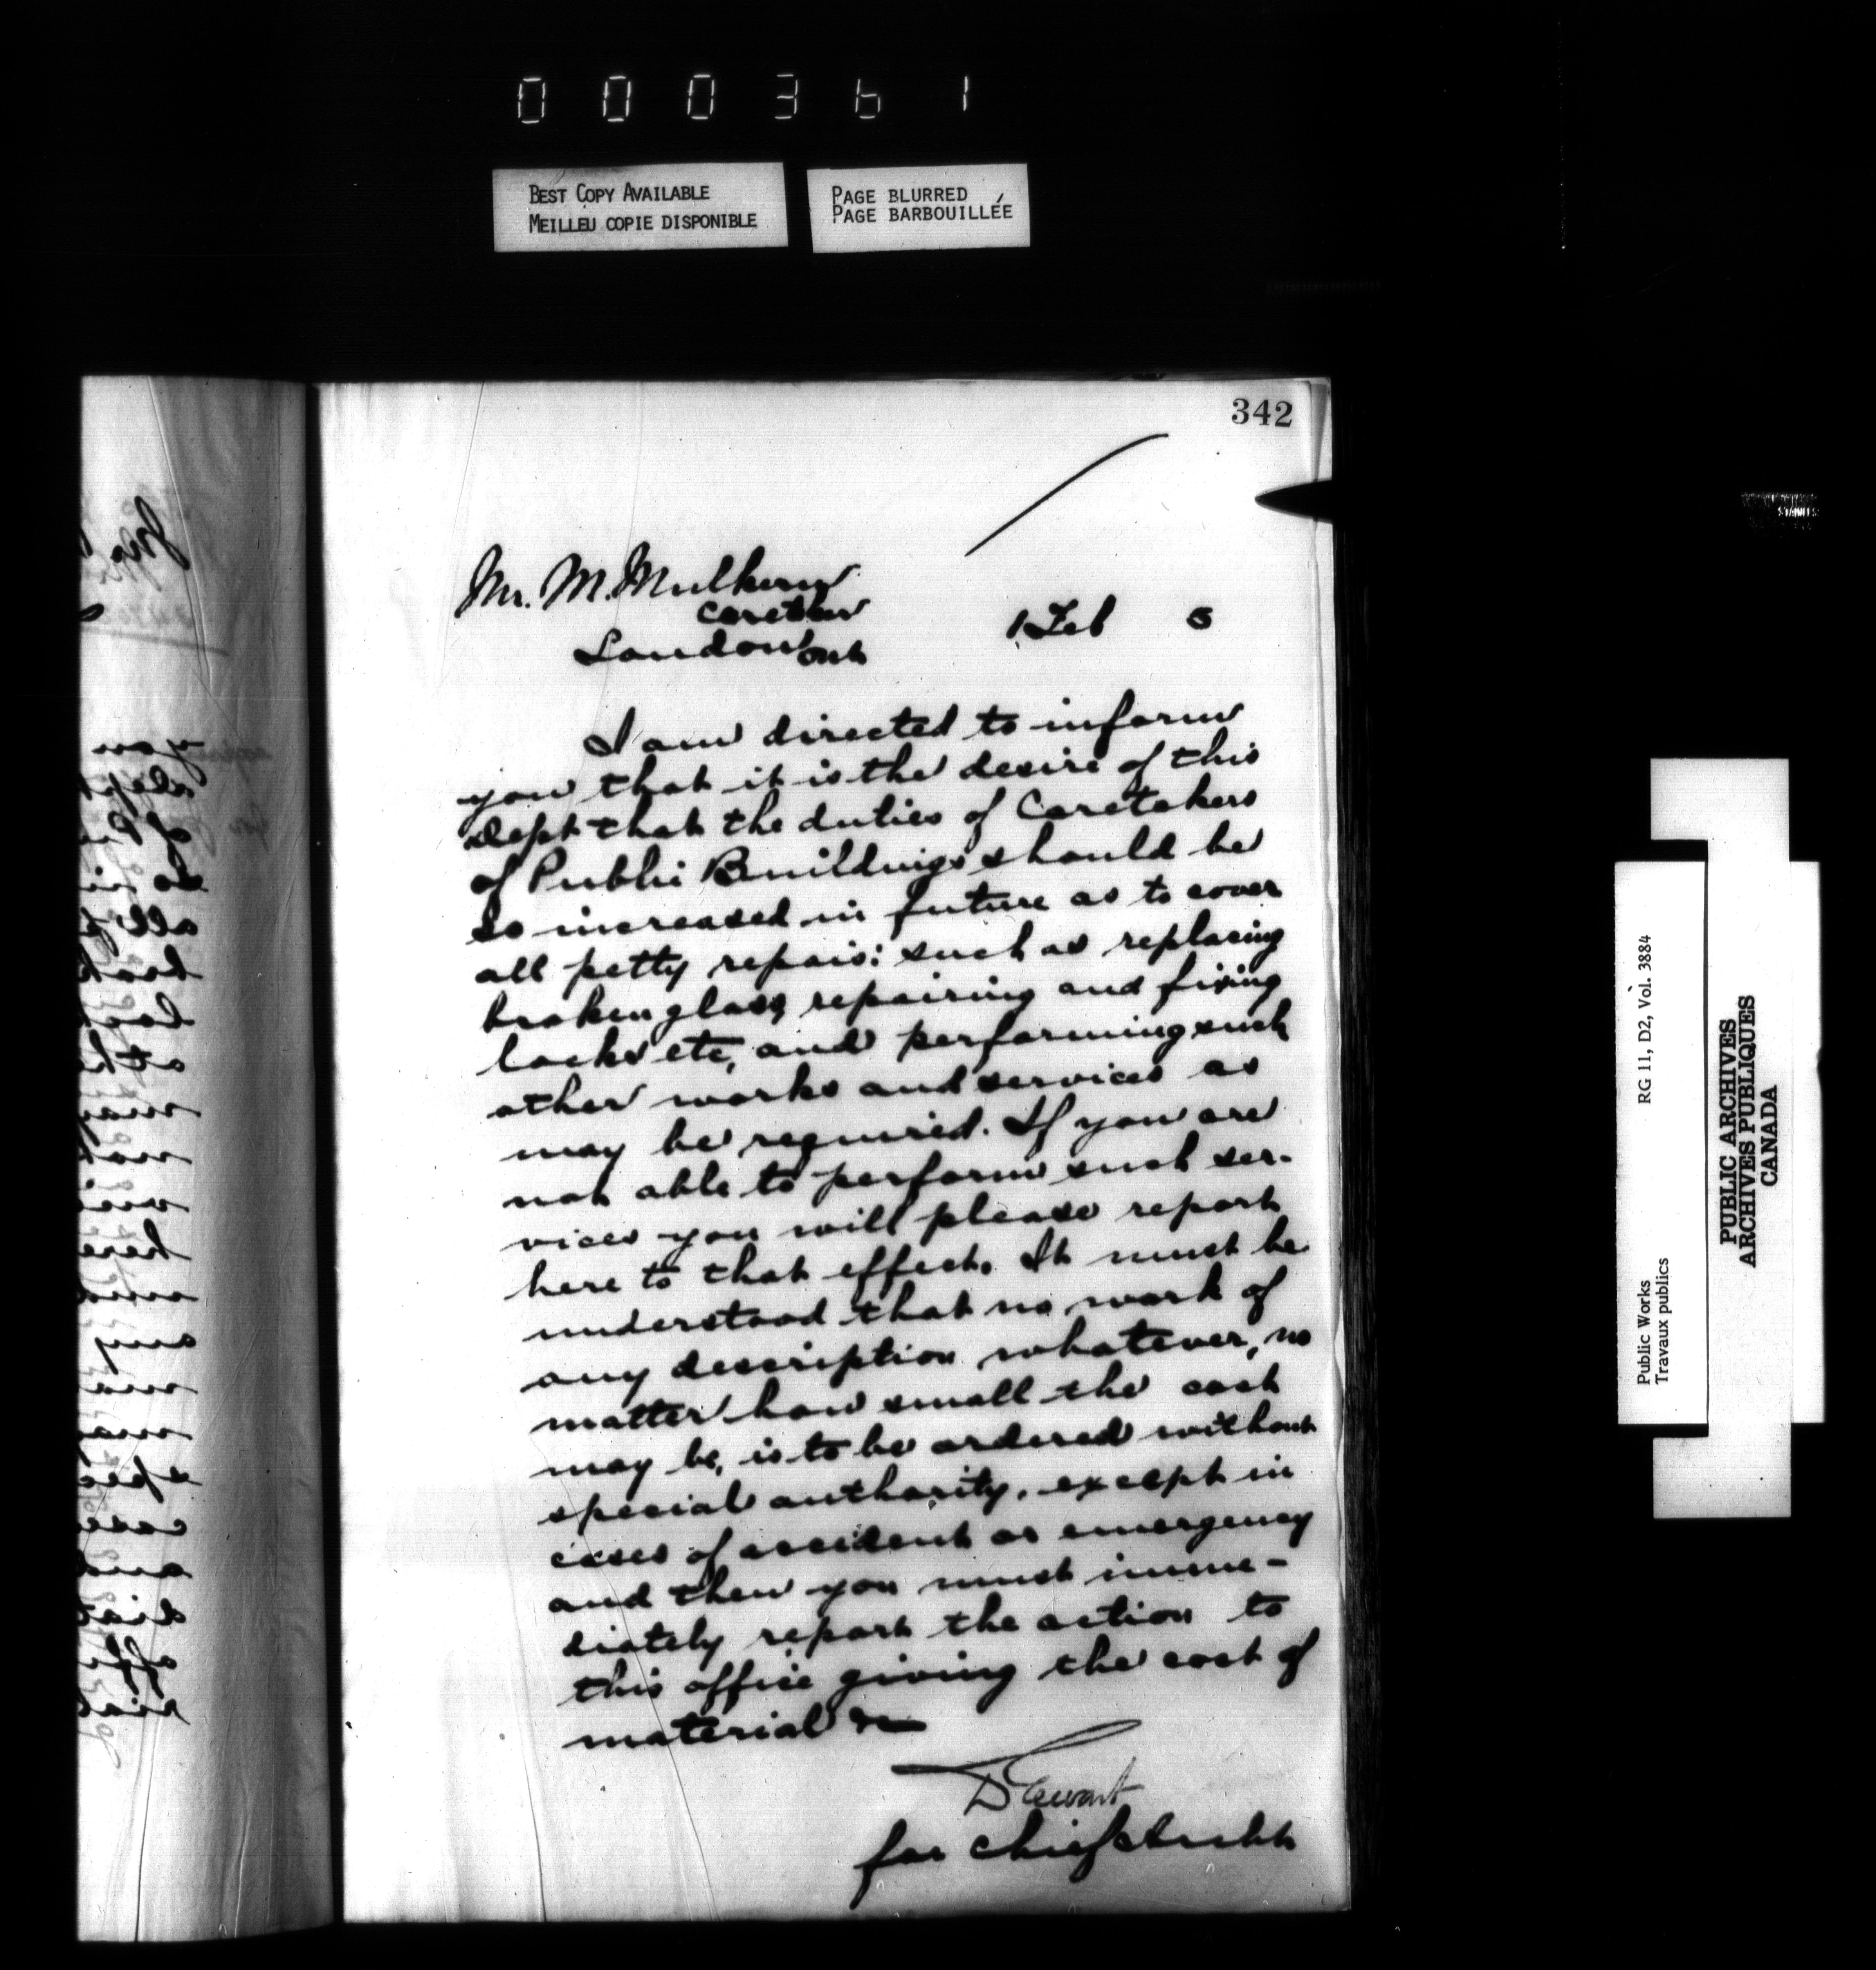 000361
BEST COPY AVAILABLE
MEILLEU COPIE DISPONIBLE
PAGE BLURRED
PAGE BARBOUILLÉE
342
Mr. M. Mulkern
Caretaker
London Ont
1 Feb 5
I am directed to inform
you that it is the desire of this
Dept that the duties of Caretakers
of Public Buildings should be
so increased in future as to cover
all petty repairs: such as replacing
broken glass, repairing and fixing
locks etc, and performing such
other works and services as
may be required. If you are
not able to perform such ser-
vices you will please report
here to that effect. It must be
understood that no work of
any description whatever, no
matter how small the cost
may be, is to be ordered without
special authority, except in
cases of accident or emergency
and then you must imme-
diately report the action to
this office giving the cost of
material &c
D Ewart
for Chief Archt
RG 11, D2, Vol. 3884
Public Works
Travaux publics
PUBLIC ARCHIVES
ARCHIVES PUBLIQUES
CANADA